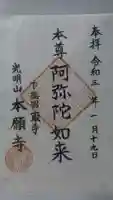 奉拝 令和三年一月十九日
本尊 阿弥陀如来
光明山 本願寺